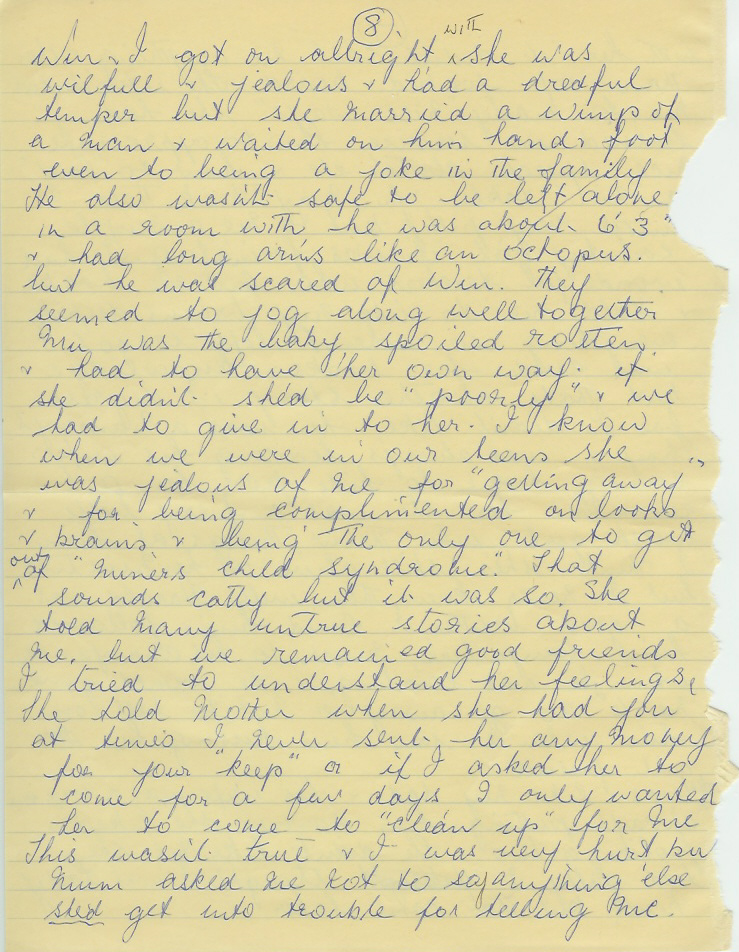 8
Win & I got on allright with she was
wilfull & jealous & had a dredful
temper but she married a wimp of
a man & waited on him hand & foot
even to being a joke in the family
He also wasn't safe to be left alone
in a room with he was about 6' 3"
& had long arms like an octopus.
but he was scared of Win. They
seemed to jog along well together
Mu was the baby spoiled rotten
& had to have her own way. if
she didn't she'd be "poorly" & we
had to give in to her. I know
when we were in our teens she
was jealous of me for "getting away"
& for being complimented on looks
& brains & being the only one to get
out of "miners child syndrome". That
sounds catty but it was so. She
told many untrue stories about
me, but we remained good friends
I tried to understand her feelings,
She told Mother when she had you
at times I never sent her any money
for your "keep" or if I asked her to
come for a few days I only wanted
her to come to "clean up" for me
This wasn't true & I was very hurt but
Mum asked me not to say anything else
she'd get into trouble for telling me.